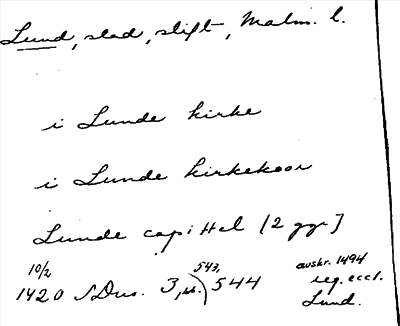 Lund, stad, stift, Malm. l.
i Lunde kirke
i Lunde kirkekoor
Lunde capittel [2 ggr]
10/2 543, avskr. 1494
1420 SDns. 3, 544 reg. eccl.
Lund.